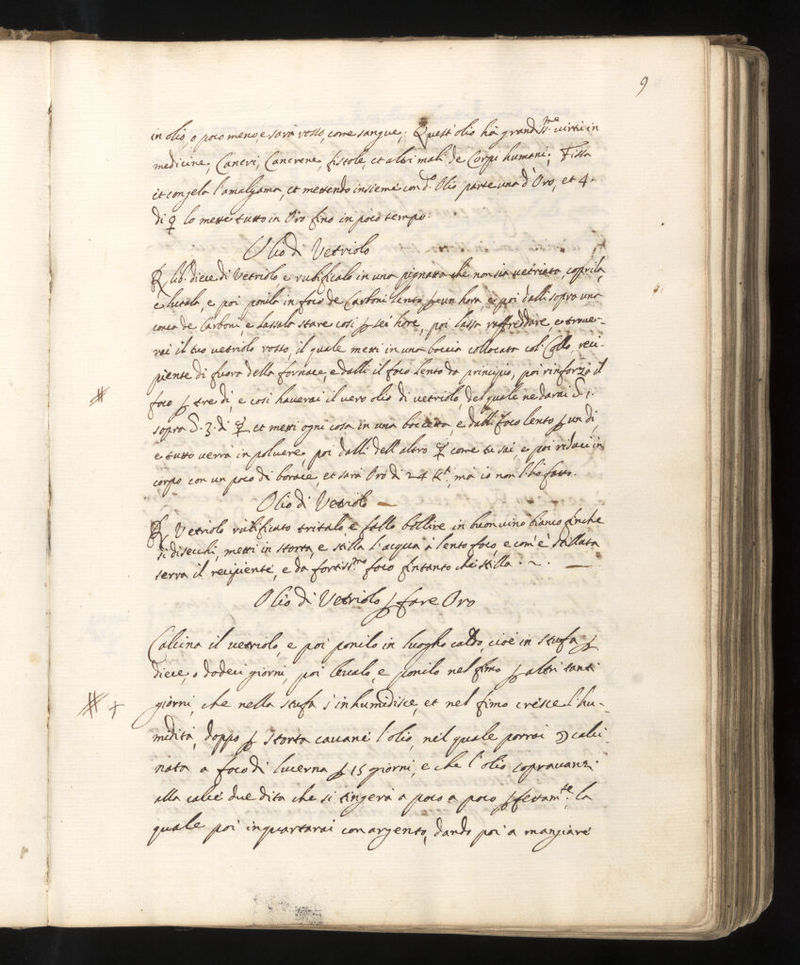 9
in olio, o poco meno, e sarà rosso, come sangue; Quest'olio hà grandss.me virtù in
medicine, Cancri, Cancrene, fistole, et altri mali de Corpi humani; Fissa
et congela l'amalgama, et mettendo insieme con d.o Olio parte una d'Oro, et 4.
di ☿ lo mette tutto in Oro fino in poco tempo.
Olio di Vetriolo
℞ lib. diece di Vetriolo e rubificalo in una pignata che non sia vetriata, coprila,
e lutala, e poi ponila in foco de Carboni lento ꝑ un hora, e poi dalli sopra una
conca de Carboni, e lassalo stare così ꝑ sei hore, poi lassa raffreddare, e trover-
rai il tuo vetriolo rosso, il quale metti in una boccia collocata col' Collo, reci-
piente di fuora della fornace, e dalli il foco lento da principio, poi rinforza il
foco ꝑ tre dì, e così haverai il vero olio di vetriolo, del quale ne darai
sopra 3. di ☿, et metti ogni cosa in una boccetta, e dalli foco lento ꝑ un dì,
e tutto verrà in polvere, poi dalli dell'altro ☿ come tu sai, e poi riduci in
corpo con un poco di borace, et sarà Oro di 24 K.ti, ma io non l'hò fatto.
Olio di Vetriolo
℞ Vetriolo rubificato tritalo, e fallo bollire in buon vino bianco finche
si disecchi, metti in storta, e stilla l'acqua à lento foco, e com'è stillata
serra il recipiente, e da fortiss.mo foco fintanto che stilla.
Olio di Vetriolo ꝑ fare Oro
Calcina il vetriolo, e poi ponilo in luogho caldo, cioè in stufa ꝑ
diece, o dodeci giorni, poi levalo, e ponilo nel fimo ꝑ altri tanti
giorni, che nella stufa s'inhumidisce, et nel fimo cresce l'hu-
midità, doppo ꝑ storta cavane l'olio, nel quale porrai ☽ calci-
nata a foco di lucerna ꝑ 15 giorni, e che l'olio sopravanzi
alla calce due dita che si tingerà a poco a poco ꝑfettam.te, la
quale poi inquartarai con argento, dando poi a mangiare